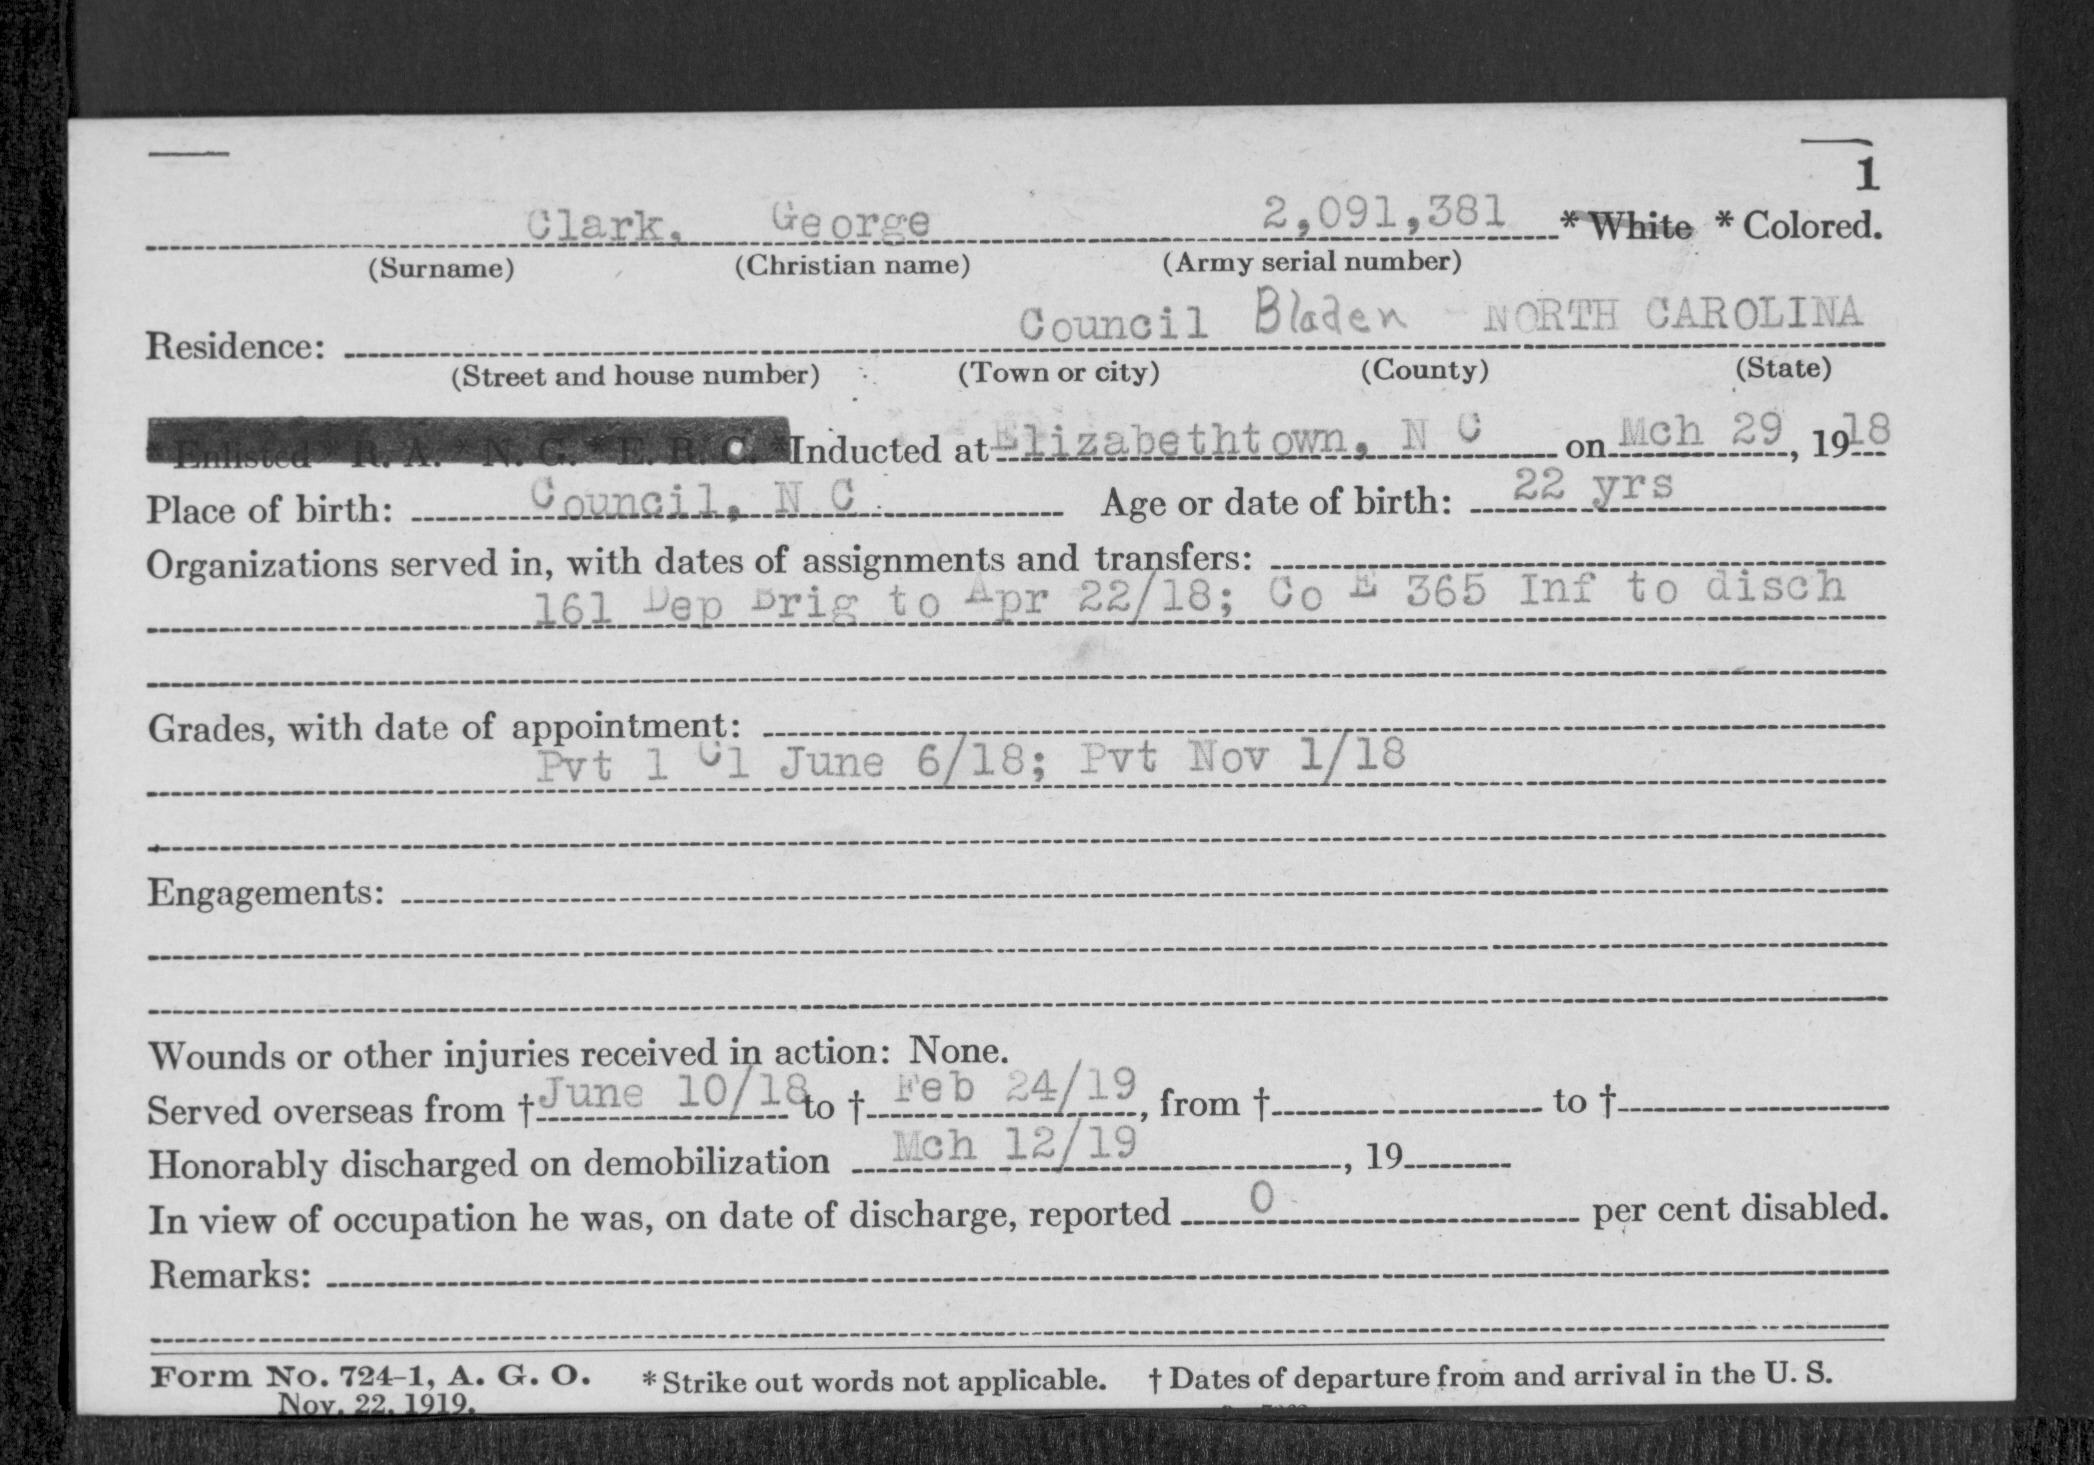 1
Clark, George 2,091,381 * White * Colored.
(Surname) (Christian name) (Army serial number)
Council Bladen NORTH CAROLINA
Residence:
(Street and house number) (Town or city) (County) (State)
* Enlisted * R. A. * N. G. * E. R. C. * Inducted at Elizabethtown, N C on Mch 29, 1918
Place of birth: Council, N C Age or date of birth: 22 yrs
Organizations served in, with dates of assignments and transfers:
161 Dep Brig to Apr 22/18; Co E 365 Inf to disch
Grades, with date of appointment:
Pvt 1 Cl June 6/18; Pvt Nov 1/18
Engagements:
Wounds or other injuries received in action: None.
Served overseas from † June 10/18 to † Feb 24/19, from † to †
Honorably discharged on demobilization Mch 12/19, 19
In view of occupation he was, on date of discharge, reported 0 per cent disabled.
Remarks:
Form No. 724-1, A. G. O. * Strike out words not applicable. † Dates of departure from and arrival in the U. S.
Nov. 22, 1919.